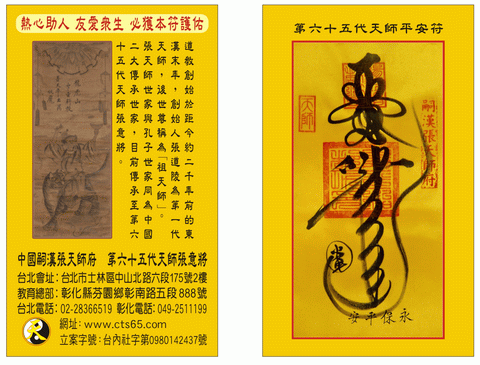 熱心助人 友愛衆生 必獲本符護佑
道教創始於距今約二千年前的東
漢末年，創始人張道陵為第一代
天師，後世尊稱為「祖天師」。
張天師世家與孔子世家同為中國
二大傳承世家，目前傳承至第六
十五代天師張意將。
中國嗣漢張天師府 第六十五代天師張意將
台北會址：台北市士林區中山北路六段175號2樓
教育總部：彰化縣芬園鄉彰南路五段888號
台北電話：02-28366519 彰化電話：049-2511199
網址：www.cts65.com
立案字號：台內社字第0980142437號
第六十五代天師平安符
天師
嗣漢張天師府
永保平安